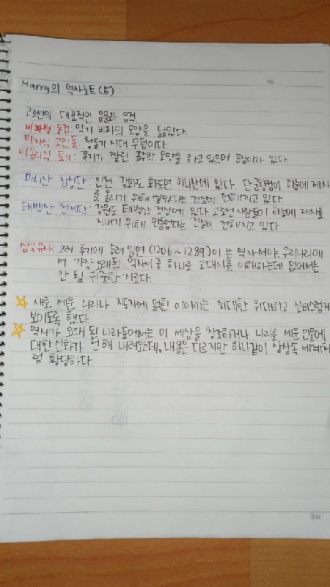 Harry의 역사노트(5)
고조선의 대표적인 유물과 유적
비파형 동검: 악기 비파의 모양을 닮았다.
탁자식 고인돌: 청동기 시대 무덤이다
미송리식 토기:
마니산 참성단: 인천 강화도 화도면 마니산에 있다 단군왕검이 하늘에 제사
를 올리기 위해 쌓았다는 전설이 전해지고 있다
태백산 천제단: 강원도 태백산 정상에 있다 고조선 사람들이 하늘에 제사를
지내기 위해 만들었다는 전해지고 있다
삼국유사: 고려 후기에 승려 일연(1206~1289)이 쓴 역사서야 우리나라에
서 가장 오래된 역사서 중 하나로 고대사를 이해하는데 없어서는
안 될 귀중한 기록이다
새로 세운 나라나 지도자에 얽힌 이야기는 최대한 위대하고 신비롭게
보이도록 했다
역사가 오래 된 나라들에서는 이 세상을 창조하거나 나라를 세운 인물에
대한 신화가 전해 내려오는데, 내용은 다르지만 하나같이 상상속 세계처
럼 황당하다